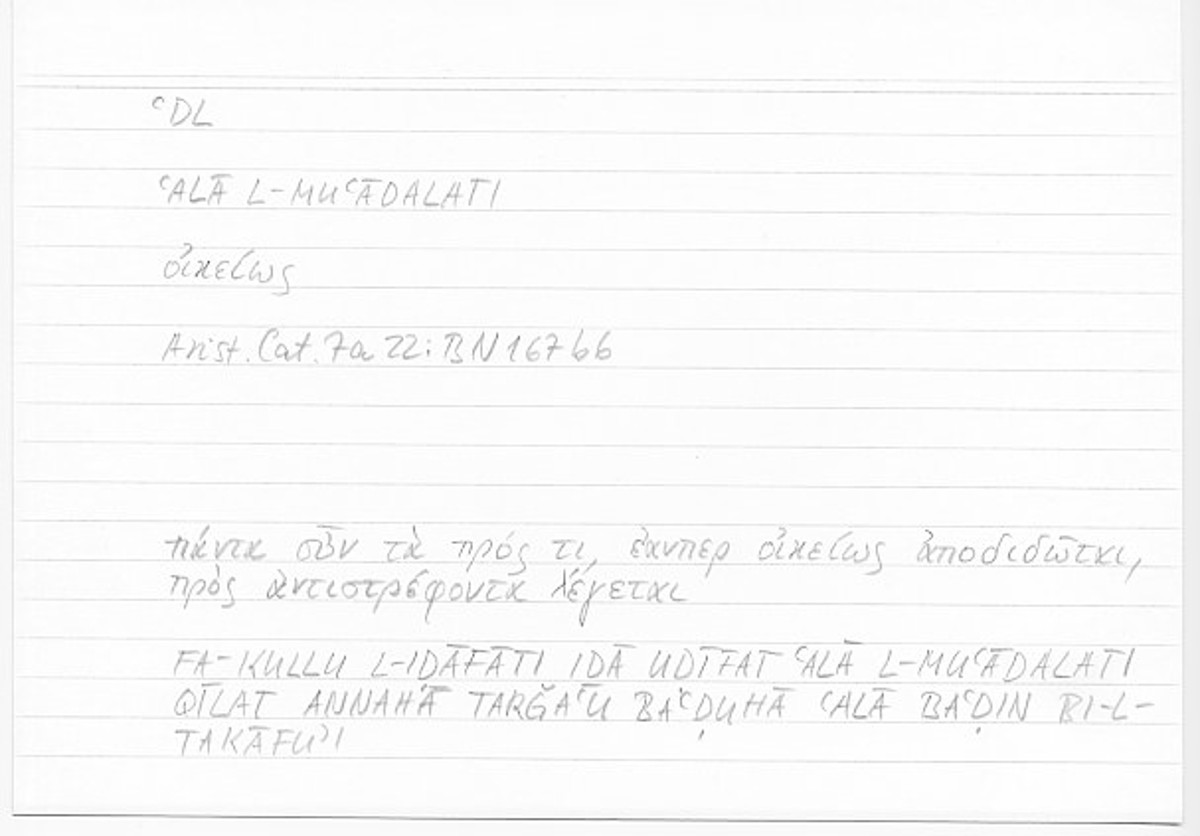 ʿDL
ʿALĀ L-MUʿĀDALATI
οἰκείως
Arist. Cat. 7a 22: BN 167b6
πάντα οὖν τὰ πρός τι, ἐάνπερ οἰκείως ἀποδιδῶται,
πρὸς ἀντιστρέφοντα λέγεται
FA-KULLU L-IDĀFĀTI IDĀ UDĪFAT ʿALĀ L-MUʿĀDALATI
QĪLAT ANNAHĀ TARǦAʿU BAʿḌUHĀ ʿALĀ BAʿḌIN BI-L-
TAKĀFUʾI